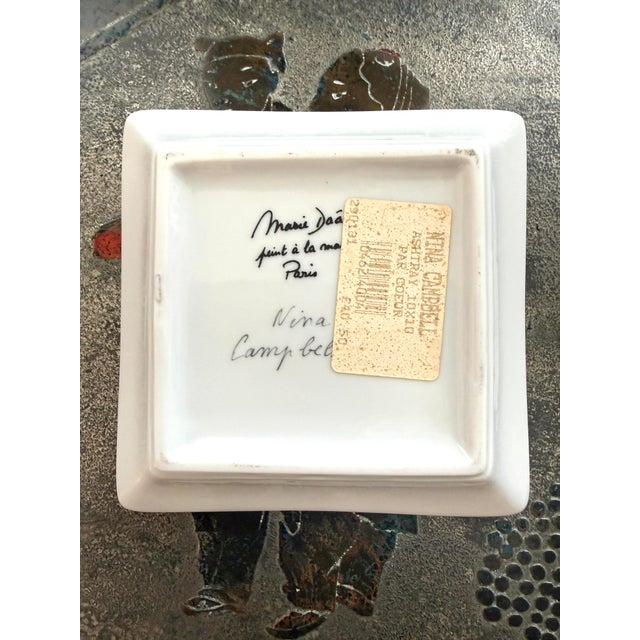 Marie Daâ
peint à la ma
Paris
Nina
Campbel
NINA CAMPBELL
ASHTRAY 10X10
PAR COEUR
£40.50